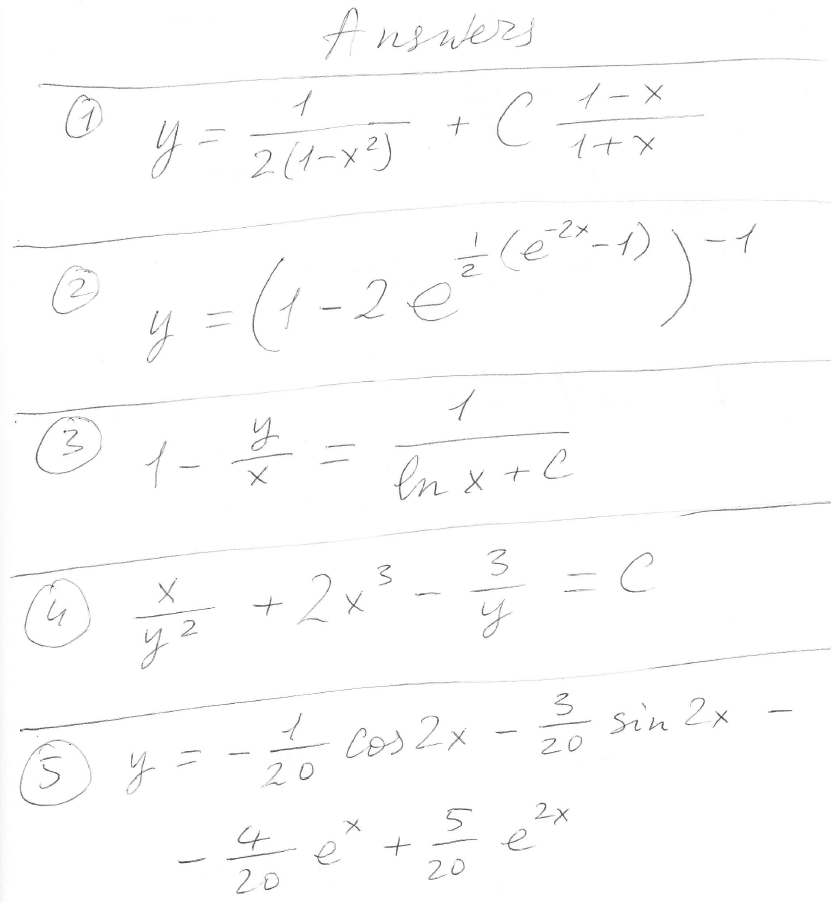 Answers
① y = 1/(2(1-x²)) + C (1-x)/(1+x)
② y = (1 - 2e^(½(e^(-2x) - 1)))^(-1)
③ 1 - y/x = 1/(ln x + C)
④ x/y² + 2x³ - 3/y = C
⑤ y = - 1/20 cos 2x - 3/20 sin 2x -
- 4/20 e^x + 5/20 e^(2x)